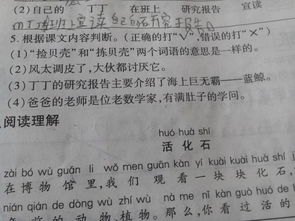 (2)自己的 丁丁 在班上 研究报告 宣读
丁丁在班上宣读自己的研究报告。
5. 根据课文内容判断。(正确的打“√”,错误的打“×”)
(1)“捡贝壳”和“拣贝壳”两个词语的意思是一样的。
(2)风太调皮了,大伙都讨厌它。
(3)丁丁的研究报告主要介绍了海上巨无霸——蓝鲸。
(4)爸爸的老师是位老数学家,有满肚子的学问。
阅读理解
huó huà shí
活 化 石
zài bó wù guǎn li wǒ men guān kàn yí kuài kuài huà shí
在 博 物 馆 里,我 们 观 看 一 块 块 化 石,
nián qián de dòng wù zhí wù nà me nǐ kàn guò huó de
前 的 动 物 植 物。那 么,你 看 过 活 的